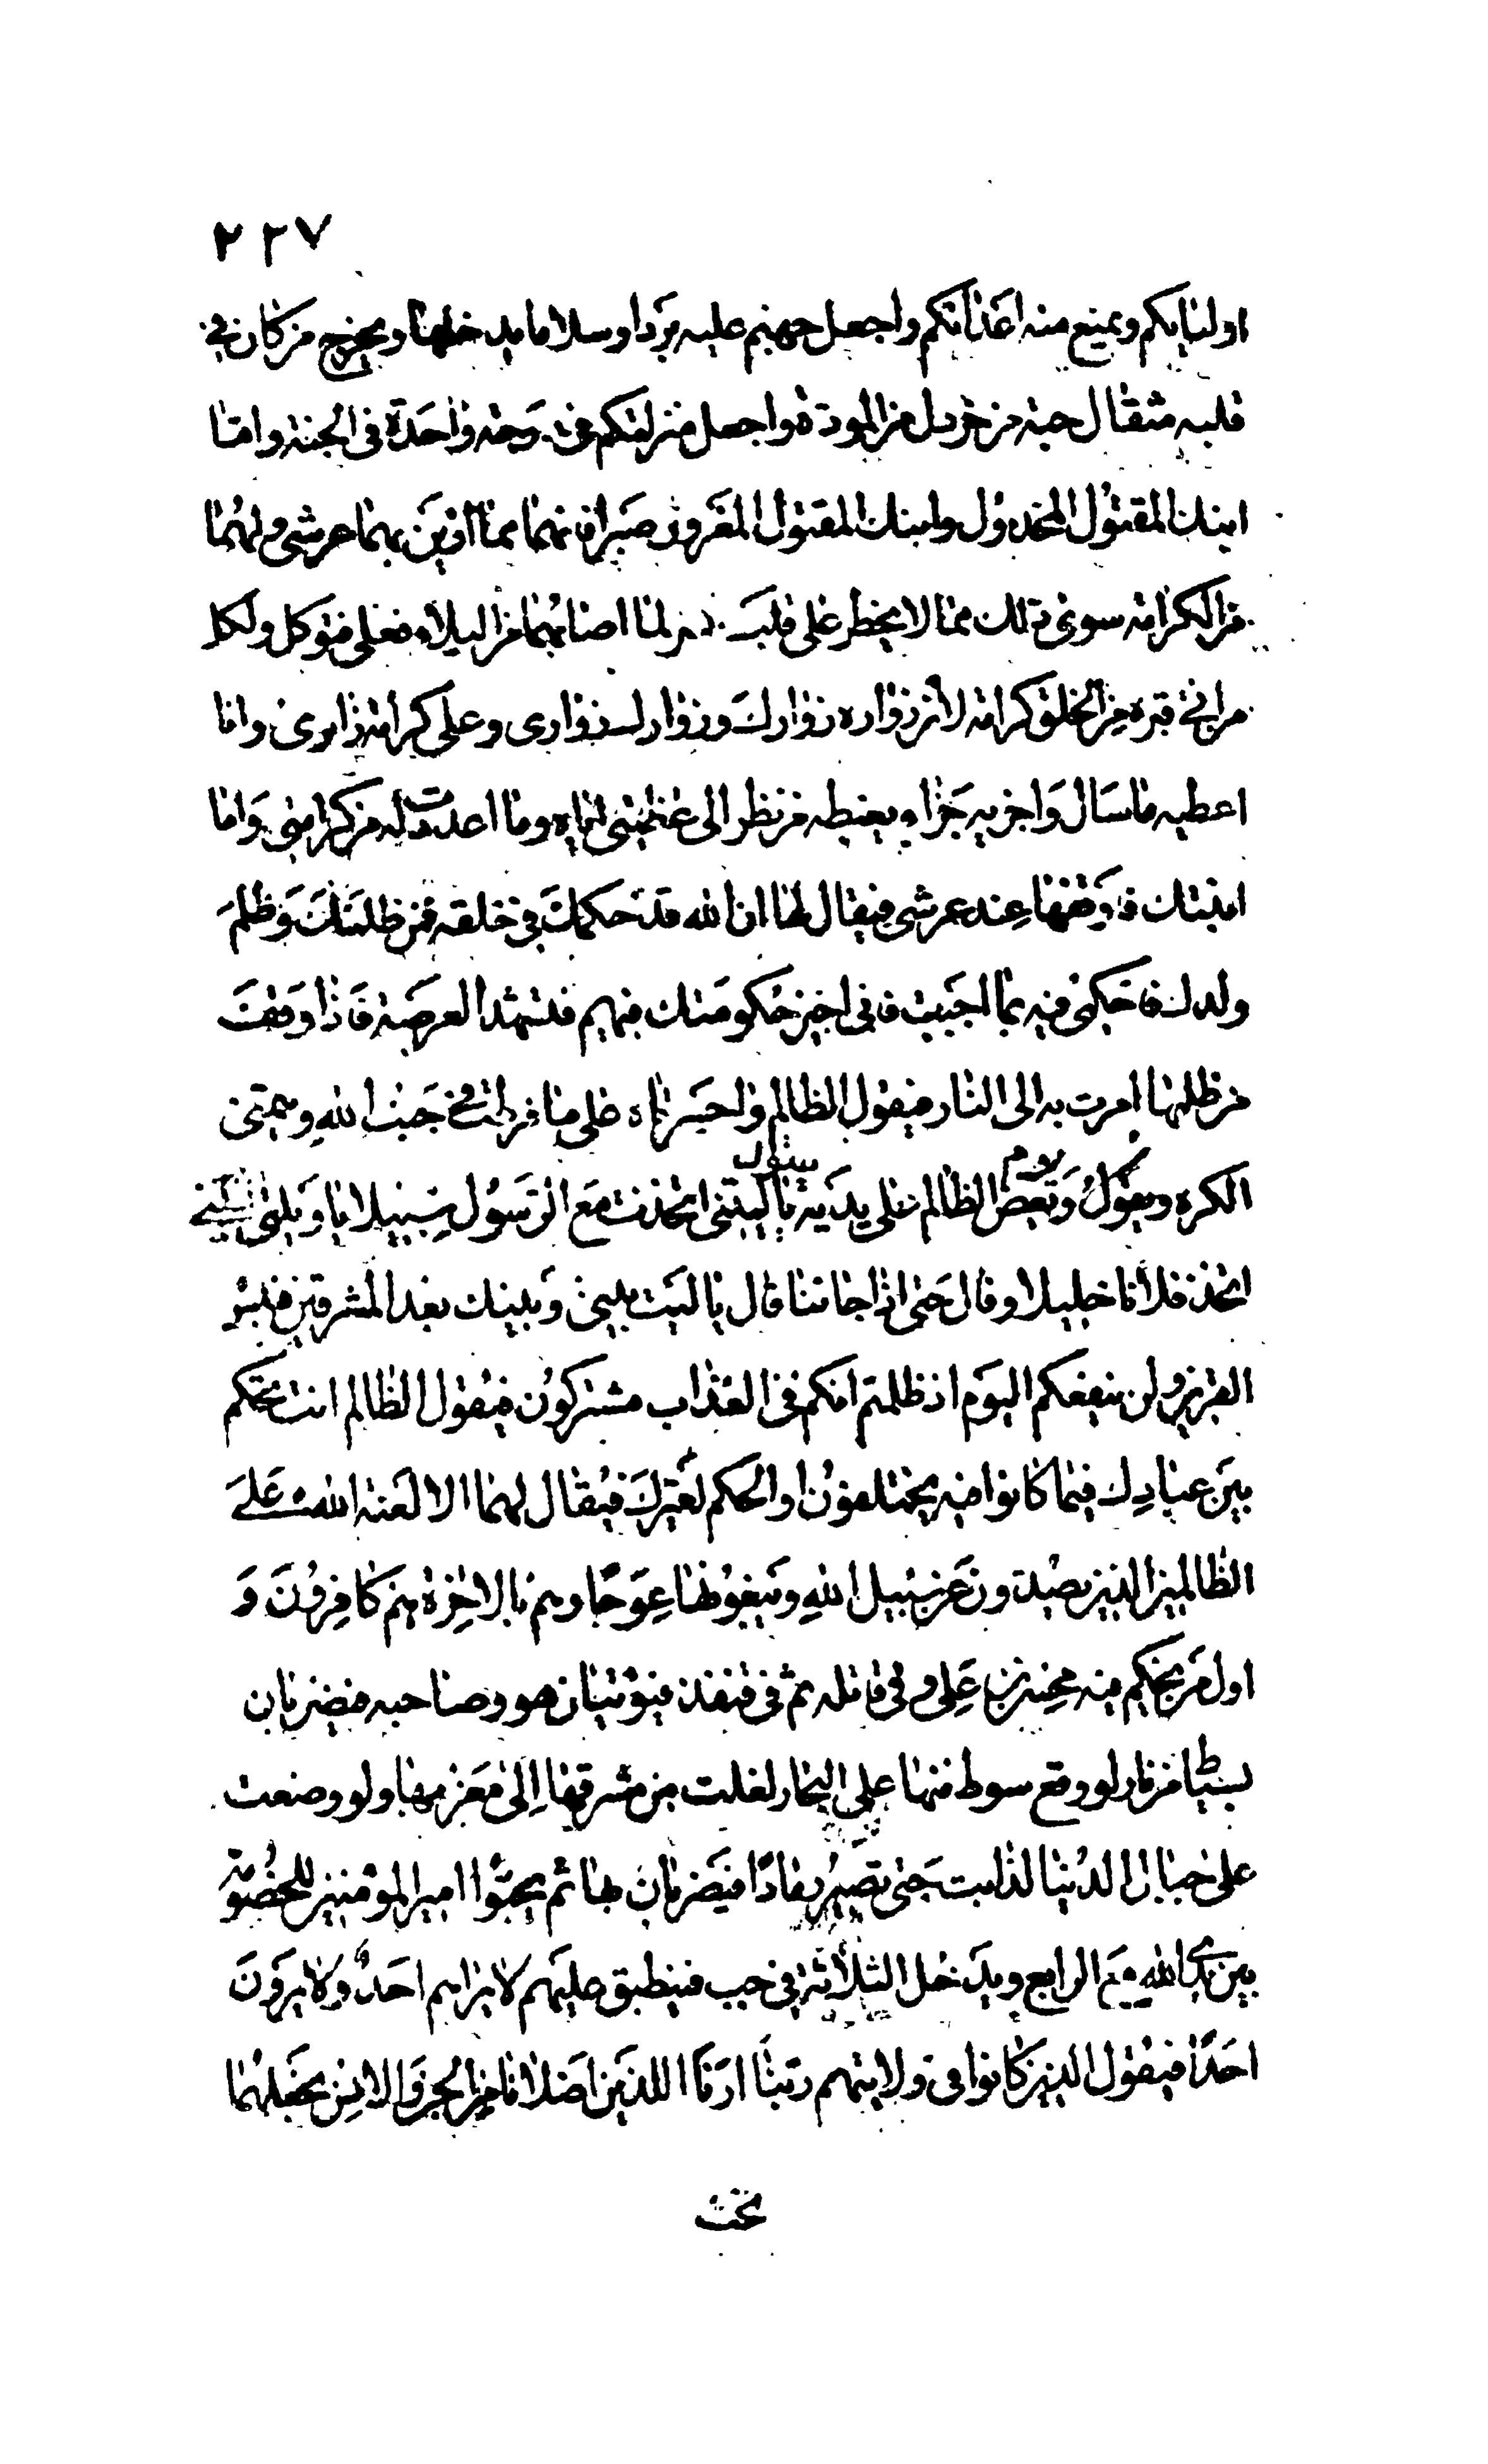 ٢٢٧
اوليائكم ويمنع منه اعدائكم واجعل جهنم عليه بردا وسلاما يدخلها ويخرج من كان في
قلبه مثقال حبة من خردل من المودة واجعل منزلتكم في درجة واحدة في الجنة واما
ابنك المقتول المخذول وابنك المقتول المغدور صبرا فانهما مما ازين بهما عرشي ولهما
من الكرامة سوى ذلك مما لا يخطر على قلب بشر لما اصابهما من البلاء فعلي فتوكل ولكل
من اتى قبره من الخلق كرامة لان زواره زوارك وزوارك زواري وعلي كرامة زايري وانا
اعطيه ما سال واجزيه جزاء يغبطه من نظر الى عظيتي اياه وما اعددت له من كرامتي واما
ابنتك فاوقفها عند عرشي فيقال لها ان الله قد حكمك في خلقه فمن ظلمك وظلم
ولدك فاحكمي فيه بما احببت فاني اجيز حكومتك فيهم فتشهد العرصة فاذا وقفت
من ظلمها امرت به الى النار فيقول الظالم واحسرتاه على ما فرطت في جنب الله ويتمنى
الكرة ويقول ويوم يعض الظالم على يديه يقول يا ليتني اتخذت مع الرسول سبيلا يا ويلتى ليتني
اتخذ فلانا خليلا وقال حتى اذا جائنا قال يا ليت بيني وبينك بعد المشرقين فبئس
القرين ولن ينفعكم اليوم اذ ظلمتم انكم في العذاب مشتركون فيقول الظالم انت تحكم
بين عبادك فيما كانوا فيه يختلفون او الحكم لغيرك فيقال لهما الا لعنة الله على
الظالمين الذين يصدون عن سبيل الله ويبغونها عوجا وهم بالاخرة هم كافرون و
اول من يحكم فيه محسن بن علي وفي قاتله ثم في قنفذ فيؤتيان هو وصاحبه فيضربان
بسياط من نار لو وقع سوط منها على البحار لغلت من مشرقها الى مغربها ولو وضعت
على جبال الدنيا لذابت حتى تصير رمادا فيضربان بها ثم يجثوا امير المؤمنين للخصومة
بين يدي الله مع الرابع ويدخل الثلاثة في جب فينطبق عليهم لا يراهم احد ولا يرون
احدا فيقول الذين كانوا في ولايتهم ربنا ارنا اللذين اضلانا من الجن والانس نجعلهما
تحت